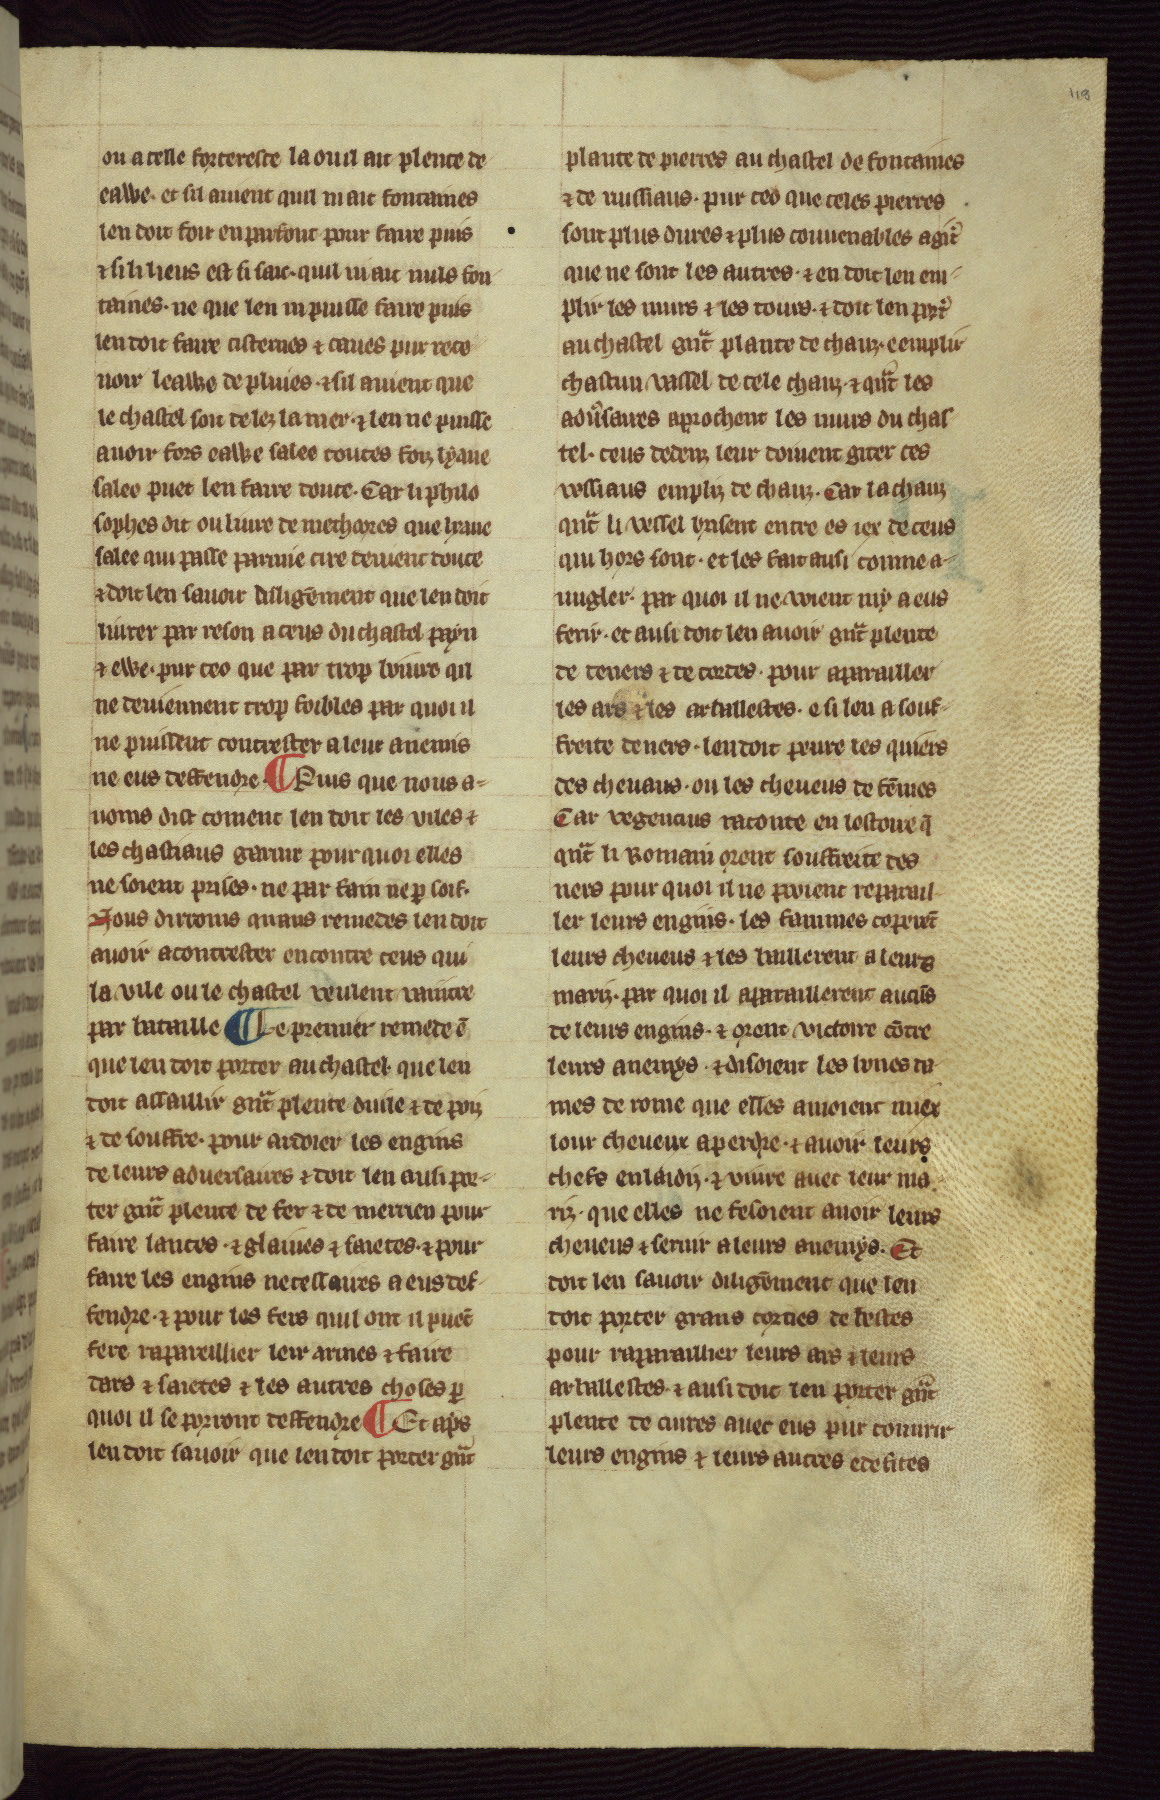 118
ou a celle forteresce la ou il ait plente de
eawe· et sil auient quil ni ait fontaines
len doit foir en parfont pour faire puis
⁊ si li lieus est si sait· quil ni ait nuls fon
taines· ne que len ni puisse faire puis
len doit faire cisternes ⁊ caues pur rece
uoir leawe de pluies· ⁊ sil auient que
le chastel soit delez la mer· ⁊ len ne puisse
auoir fors eawe salee toutes foiz lyaue
salee puet len faire douce· Car li philo
sophes dit ou liure de metheores que lyaue
salee qui passe parmie cire deuient douce
⁊ doit len sauoir diligēment que len doit
liurer par reson a ceus du chastel payn
⁊ ewe· pur ceo que par trop boiure qil
ne deuiennent trop foibles par quoi il
ne puissent contrester a leur anemis
ne eus deffendre· ¶ Puis que nous a-
uoms dist coment len doit les viles ⁊
les chastiaus garnir pour quoi elles
ne soient prises· ne par fain ne ꝑ soif·
Nous dirroms quaus remedes len doit
auoir a contrester encontre ceus qui
la vile ou le chastel veulent vaincre
par bataille ¶ Le premier remede ē
que len doit porter au chastel· que len
doit assaillir gn̄t plente duile ⁊ de poiz
⁊ de souffre· pour ardoier les engins
de leurs aduersaires ⁊ doit len ausi por-
ter gn̄t plente de fer ⁊ de merrien pour
faire lances· ⁊ glaiues ⁊ saietes· ⁊ pour
faire les engins necessaires a eus def-
fendre· ⁊ pour les fers quil ont il puēt
fere rapareillier leir armes ⁊ faire
dars ⁊ saietes ⁊ les autres choses ꝑ
quoi il se porront deffendre ¶ Et ap̄s
len doit sauoir que len doit porter gn̄t
plante de pierres au chastel de fontaines
⁊ de russiaus· pur ceo que celes pierres
sont plus dures ⁊ plus conuenables a git̄
que ne sont les autres· ⁊ en doit len em-
plir les murs ⁊ les tours· ⁊ doit len port̄
au chastel gn̄t plante de chauz· e emplir
chascun vassel de cele chauz· ⁊ qn̄t les
adu̓saires aprochent les murs du chas
tel· ceus dedenz leur doiuent giter ces
vessiaus empliz de chauz· Car la chauz
qn̄t li vessel brisent entre es iex de ceus
qui hors sont· et les fait ausi comme a-
uugler· par quoi il ne voient my a eus
ferir· et ausi doit len auoir gn̄t plente
de deners ⁊ de cordes· pour aparailler
les ars ⁊ les arballestes· e si len a souf-
freite de ners· len doit penre les quiers
des cheuaus· ou les cheueus de fēmes
Car vegencius raconte en lestoire q̄
qn̄t li Romain orent souffreite des
ners pour quoi il ne poient reparail
ler leurs engins· les fammes coperēt
leurs cheueus ⁊ les baillerent a leurs
mariz· par quoi il aparaillerent aucūs
de leurs engins· ⁊ orent victoire cōtre
leurs anemys· ⁊ disoient les bones da
mes de rome que elles amoient miex
lour cheueux a perdre· ⁊ auoir leurs
chefs enlaidiz· ⁊ viure auec leur ma
riz· que elles ne fesoient auoir leurs
cheueus ⁊ seruir a leurs anemys· Et
doit len sauoir diligēment que len
doit porter grans cornes de bestes
pour raparaillier leurs ars ⁊ leurs
arballestes· ⁊ ausi doit len porter gn̄t
plente de cuires auec eus pur couurir
leurs engins ⁊ leurs autres edefices